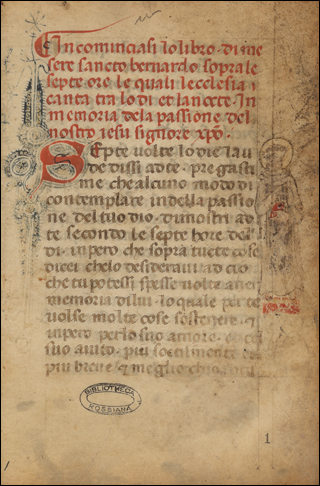 Incominciasi lo libro · di me
sere sancto bernardo sopra le
septe ore le quali lecclesia ·
canta tra lo di et la nocte · In
memoria dela passione del
nostro iesu signore xpo ·
Septe volte lo die lau
de dissi ad te · pregasti
me che alcuno modo di
contemplare in della passio
ne del tuo dio · dimostri ad
te secondo le septe hore del
di · inpero che sopra tucte cose
dicei che lo desideravi ad cio
che tu potessi spesse volte aver
memoria di lui · lo quale per te
volse molte cose sostenere · et
inpero per lo suo amore ·
suo aiuto · piu sottilmente
piu breve · et meglio chio
BIBLIOTHECA
ROSSIANA
1